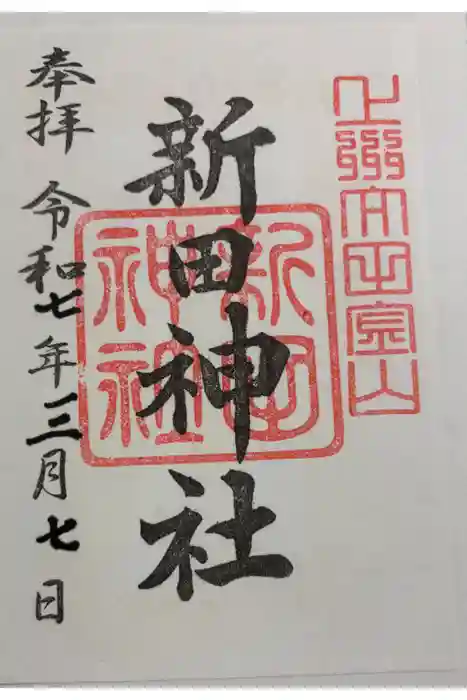 上州太田金山
新田神社
新田
神社
奉拝 令和七年三月七日